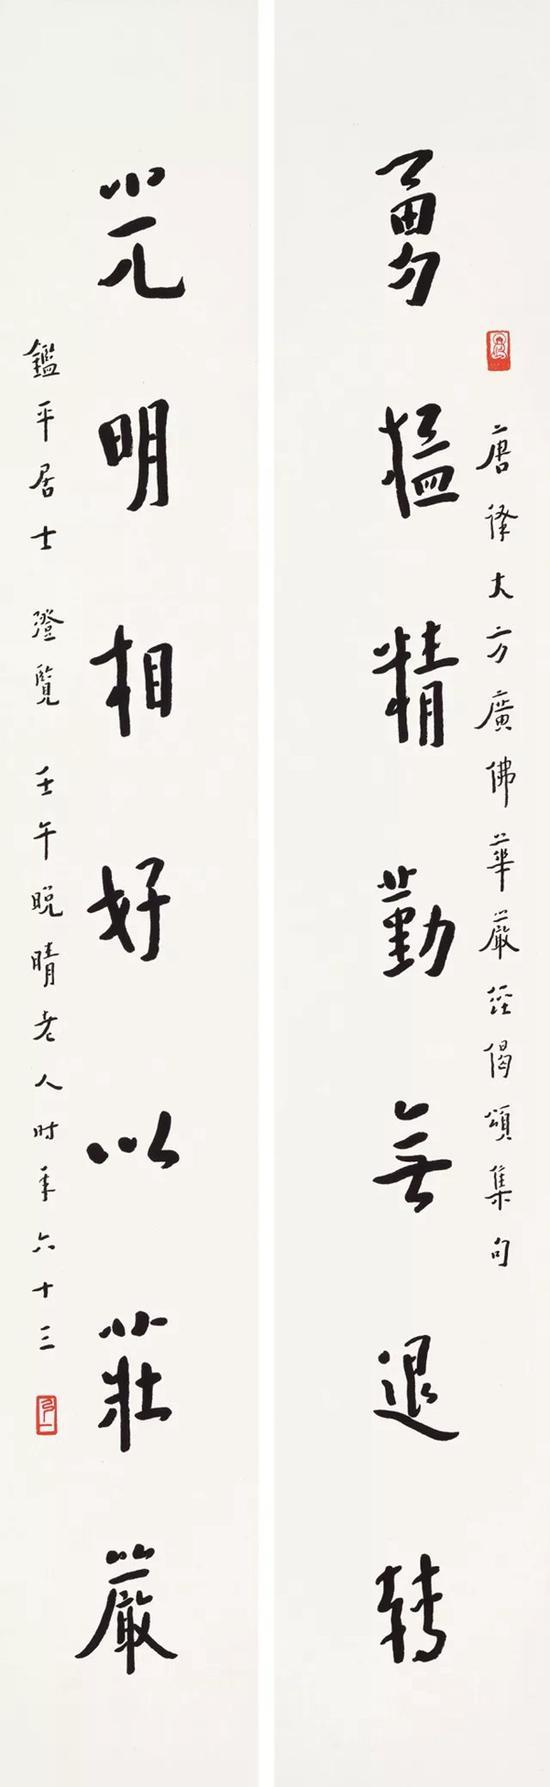 唐譯大方廣佛華嚴經偈頌集句
勇猛精勤無退轉
光明相好以莊嚴
鑑平居士 澄覽 壬午晚晴老人時年六十三
弘一